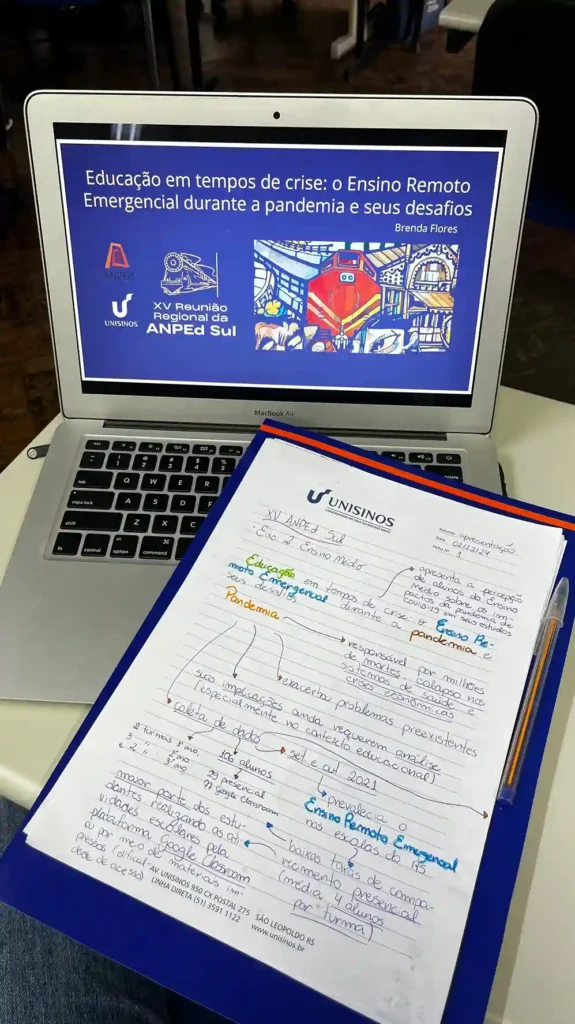 Educação em tempos de crise: o Ensino Remoto
Emergencial durante a pandemia e seus desafios
Brenda Flores
ANPEd
UNISINOS
XV Reunião
Regional da
ANPEd Sul
MacBook Air
caps lock
shift
fn
control
option
command
UNISINOS
apresentação
02/12/24
1
XV ANPEd Sul
Eixo 2 Ensino Médio
Educação em tempos de crise: o Ensino Re-
moto Emergencial durante a pandemia e
seus desafios
apresenta a percepção
de alunos do Ensino
Médio sobre os im-
pactos da pandemia de
covid-19 em seus estudos
Pandemia
responsável por milhões
de mortes, colapso nos
sistemas de saúde e
crises econômicas
exacerba problemas preexistentes
suas implicações ainda requerem análise
(especialmente no contexto educacional)
coleta de dados
2 turmas 1º ano,
3 " 2º ano
e 2 " 3º ano
106 alunos
29 presencial
77 Google Classroom
set e out 2021
prevalecia o
Ensino Remoto Emergencial
nas escolas do RS
baixas taxas de compa-
recimento presencial
(média 4 alunos
por turma)
maior parte dos estu-
dantes realizando as ati-
vidades escolares pela
plataforma Google Classroom
ou por meio de materiais im-
pressos (dificul-
dade de acesso)
AV. UNISINOS 950 CX POSTAL 275 SÃO LEOPOLDO RS
LINHA DIRETA (51) 3591 1122 www.unisinos.br